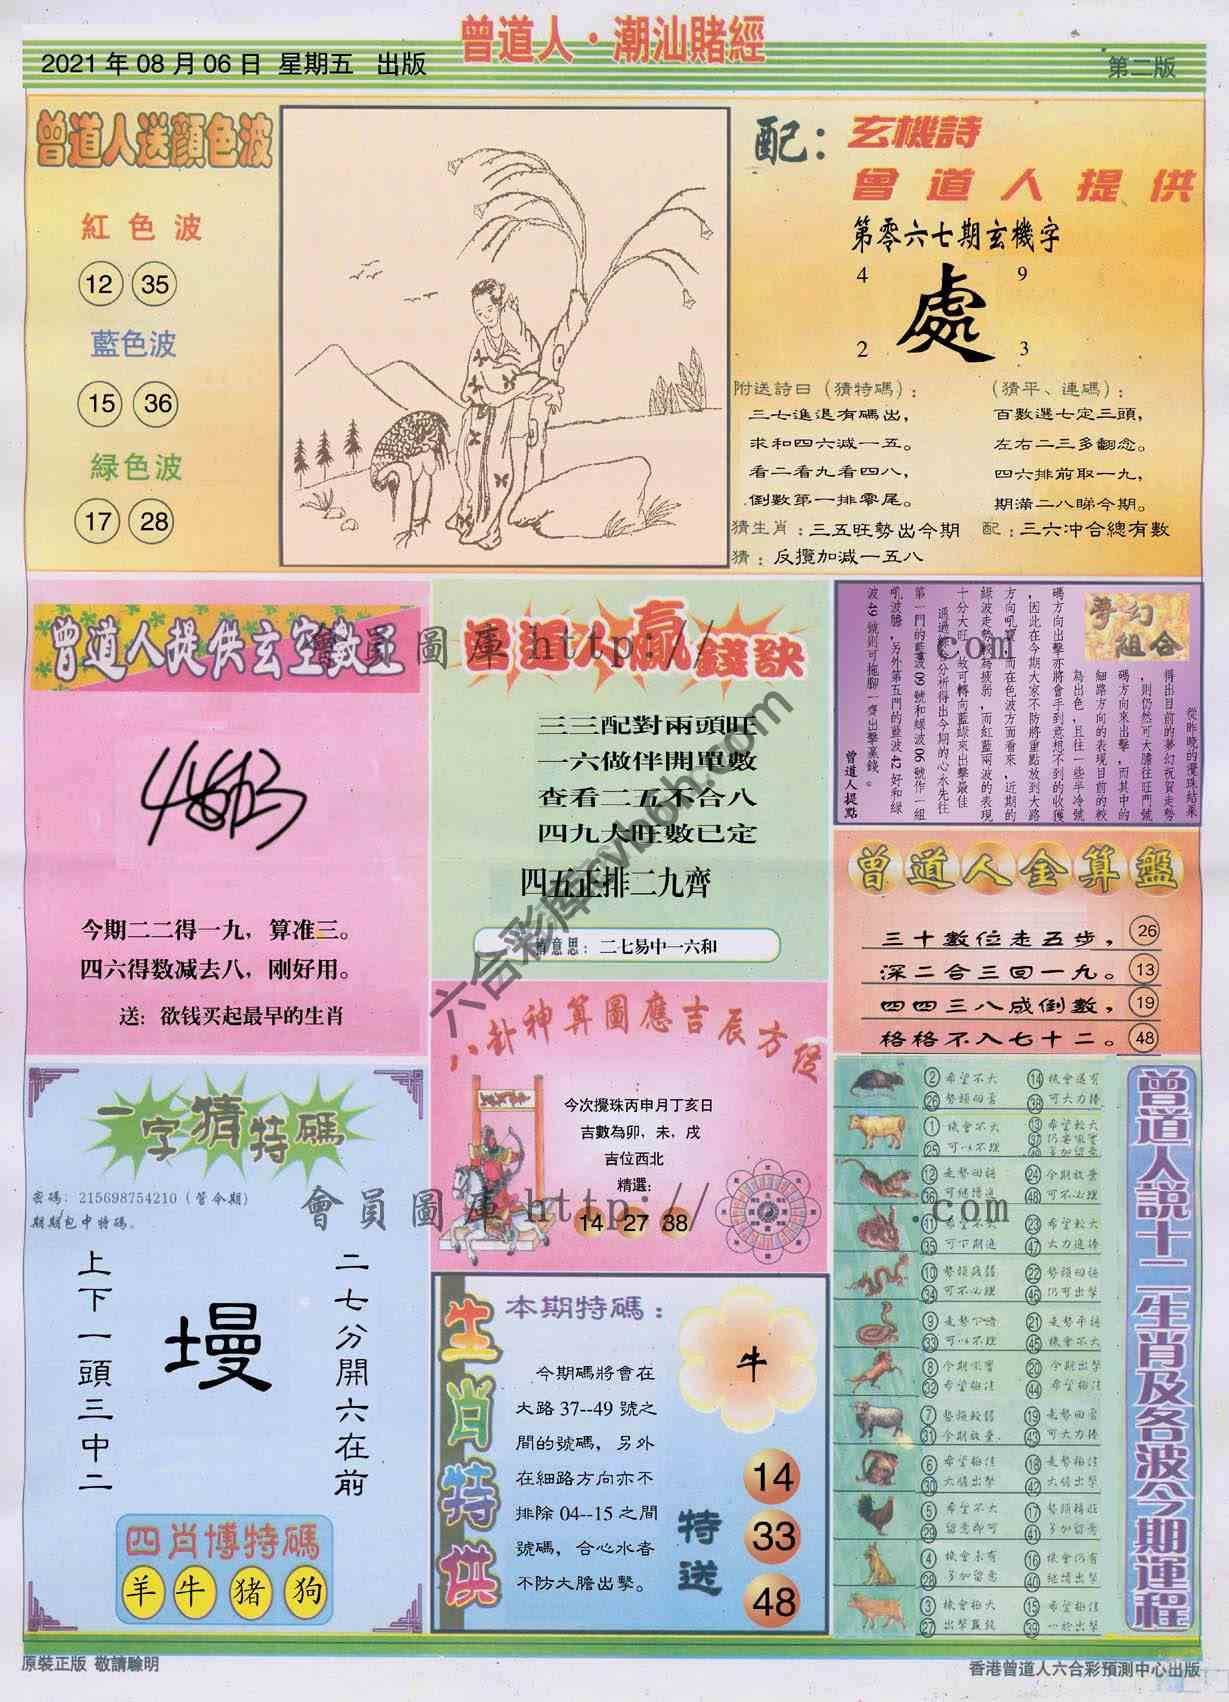 曾道人·潮汕賭經
2021年08月06日 星期五 出版
第二版
曾道人送顏色波
紅色波
12 35
藍色波
15 36
緑色波
17 28
配：玄機詩
曾道人提供
第零六七期玄機字
4 9
處
2 3
附送詩曰（猜特碼）：
三七進退有碼出，
求和四六減一五。
看二看九看四八，
倒數第一排零尾。
（猜平、連碼）：
百數選七定三頭，
左右二三多翻念。
四六排前取一九，
期滿二八睇今期。
猜生肖：三五旺勢出今期 配：三六冲合總有數
猜：反攬加減一五八
曾道人提供玄空數王
今期二二得一九，算准三。
四六得数减去八，刚好用。
送：欲钱买起最早的生肖
曾道人贏錢訣
三三配對兩頭旺
一六做伴開單數
查看二五不合八
四九大旺數已定
四五正排二九齊
曾意思：二七易中一六和
夢幻組合
從昨晚的攪珠結果
得出目前的夢幻祝賀走勢
，則仍然可大膽往旺門號
碼方向來出擊，而其中的
細路方向的表現目前的較
為出色，且往一些半冷號
碼方向出擊亦將會手到意想不到的收獲
，因此在今期大家不防將重點放到大路
方向吼實，而在色波方面看來，近期的
綠波走勢較為疲弱，而紅藍兩波的表現
十分大旺，故可轉向藍綠來出擊最佳
通過綜合分析得出今期的心水先往
第一門的藍波09號和綠波06號作一組
吼波膽，另外第五門的藍波42好和綠
波49號則可拖腳一齊出擊贏錢。
曾道人提點
曾道人金算盤
三十數位走五步， 26
深二合三回一九。 13
四四三八成倒數， 19
格格不入七十二。 48
八卦神算圖應吉辰方位
今次攪珠丙申月丁亥日
吉數為卯，未，戌
吉位西北
精選：
14 27 38
一字猜特碼
密碼：215698754210（管令期）
期期包中特碼。
二七分開六在前
墁
上下一頭三中二
四肖博特碼
羊 牛 猪 狗
生肖特供
本期特碼：
今期碼將會在
大路37--49號之
間的號碼，另外
在細路方向亦不
排除04--15之間
號碼，合心水者
不防大膽出擊。
牛
特送
14
33
48
曾道人説十二生肖及各波今期運程
2 希望不大 14 機會還有
26 勢頭回落 38 可大力捧
1 機會不大 13 希望較大
25 可以不理
12 走勢回穩 24 今期放棄
36 可繼續追 48 可不必理
11 希望不大 23 希望較大
35 可下期追 47 大力追捧
10 勢頭疲弱 22 勢頭回穩
34 可不必理 46 仍可出擊
9 走勢下滑 21 走勢平穩
33 可以不理 45 機會不大
8 今期吼實 20 今期出擊
32 希望極佳 44 希望極佳
7 勢頭較弱 19 走勢回落
31 今期放棄 43 可大力捧
6 希望極佳 18 走勢極佳
30 大膽出擊 42 大膽出擊
5 希望不大 17 勢頭稍旺
29 留意即可 41 多加留意
4 機會未有 16 機會仍有
28 多加留意 40 繼續出擊
3 機會極大 15 希望極佳
27 出擊贏錢 39 一於出擊
會員圖庫 http:// .com
六合彩庫cvbbh.com
會員圖庫 http:// .com
原裝正版 敬請驗明
香港曾道人六合彩預測中心出版